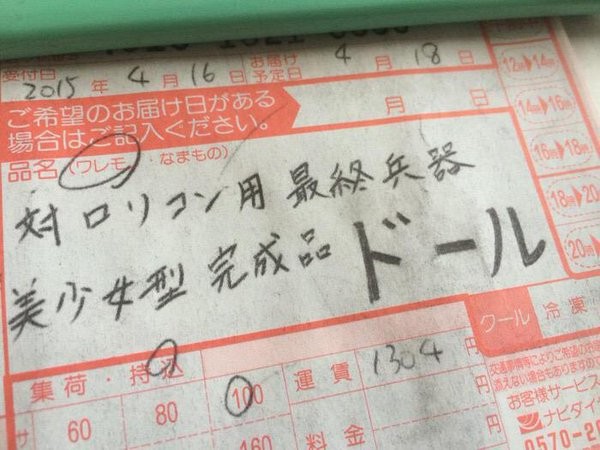 受付日 2015 年 4 月 16 日 お届け予定日 4 月 18 日
ご希望のお届け日がある
場合はご記入ください。
月 日
品名(ワレモノ なまもの)
対ロリコン用最終兵器
美少女型 完成品 ドール
クール 冷凍
集荷・持込
運賃 1304 円
サ 60 80 100
160 料金 円
12時▶14時
14時▶16時
16時▶18時
18時▶20
20時▶
お客様サービス
ナビダイヤ
0570-20